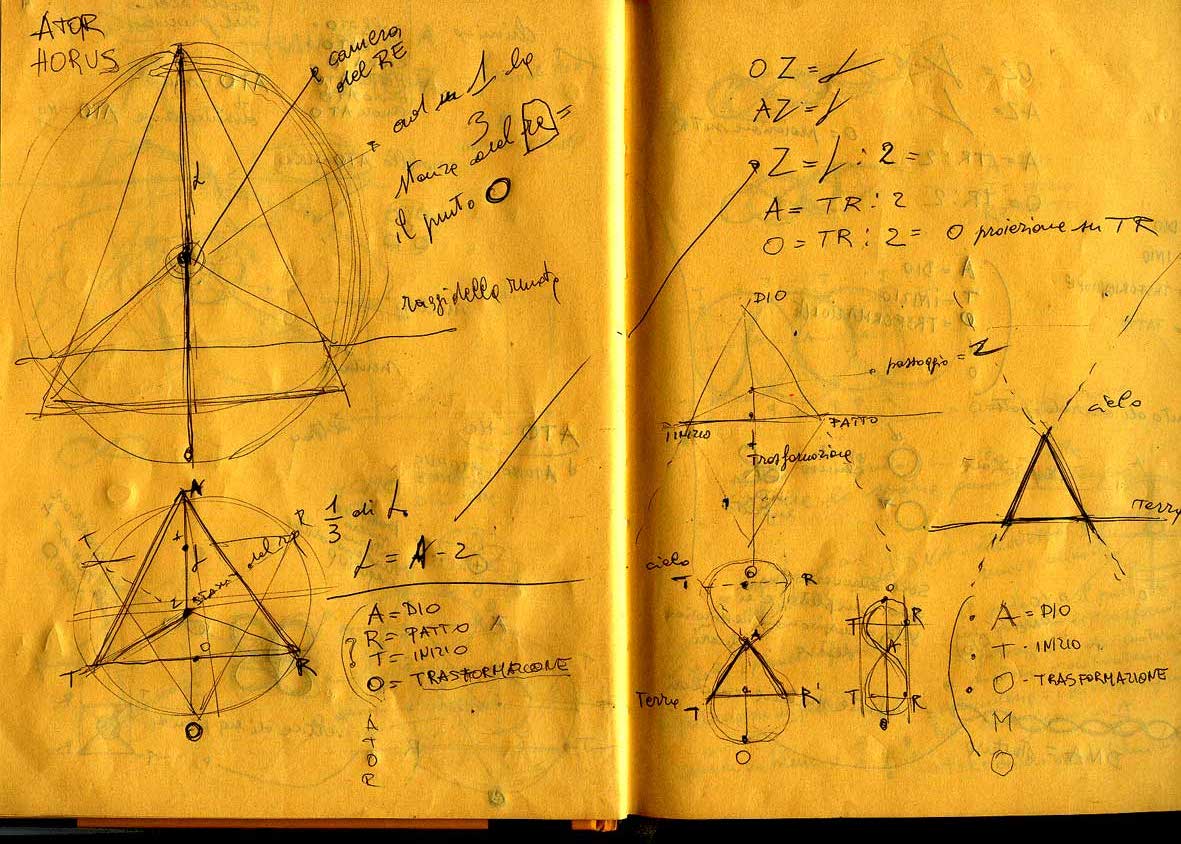 ATOR
HORUS
camera
del RE
ad 1
3
stanze del re =
il punto O
L
raggi della ruota
A
1/3 di L
L = A - 2
T
R
Z
stanza del re
o
T
R
O
A = DIO
R = PATTO
T = INIZIO
O = TRASFORMAZIONE
?
A
T
O
R
OZ = L
AZ = L
Z = L : 2 =
A = TR : 2
O = TR : 2 = O proiezione su TR
DIO
passaggio = Z
INIZIO
PATTO
Trasformazione
cielo
Terra
cielo
T
O
R
A
Terra
T
R'
O
O
T
R
A
T
R
O
A = DIO
T - INIZIO
O - TRASFORMAZIONE
M
O